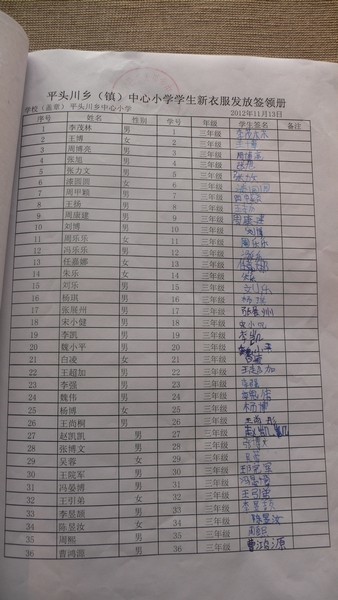 平头川乡（镇）中心小学学生新衣服发放签领册
学校（盖章）平头川乡中心小学 2012年11月13日
序号 姓名 性别 学号 年级 学生签名 备注
1 李茂林 男 1 三年级 李茂林
2 王博 女 2 三年级
3 周博亮 男 3 三年级
4 张旭 男 4 三年级 张旭
5 张力文 男 5 三年级
6 漆圆圆 女 6 三年级
7 周甲毅 男 7 三年级
8 王扬 男 8 三年级
9 周康建 男 9 三年级 周康建
10 刘博 男 10 三年级 刘博
11 周乐乐 女 11 三年级 周乐乐
12 冯乐乐 男 12 三年级
13 任嘉娜 女 13 三年级
14 朱乐 女 14 三年级 朱乐
15 刘乐 男 15 三年级 刘乐
16 杨琪 男 16 三年级 杨琪
17 张展州 男 17 三年级 张展州
18 宋小健 男 18 三年级
19 李凯 男 19 三年级 李凯
20 魏小平 男 20 三年级
21 白凌 女 21 三年级
22 王超加 男 22 三年级 王超加
23 李强 男 23 三年级 李强
24 魏伟 男 24 三年级
25 杨博 女 25 三年级 杨博
26 王尚桐 男 26 三年级
27 赵凯凯 男 27 三年级 赵凯凯
28 张博文 男 28 三年级
29 吴蓉 女 29 三年级 吴蓉
30 王院军 男 30 三年级
31 冯晏博 男 31 三年级
32 王引弟 女 32 三年级 王引弟
33 李显颉 男 33 三年级
34 陈昱汝 女 34 三年级 陈昱汝
35 周熙 男 35 三年级
36 曹鸿源 男 36 三年级 曹鸿源